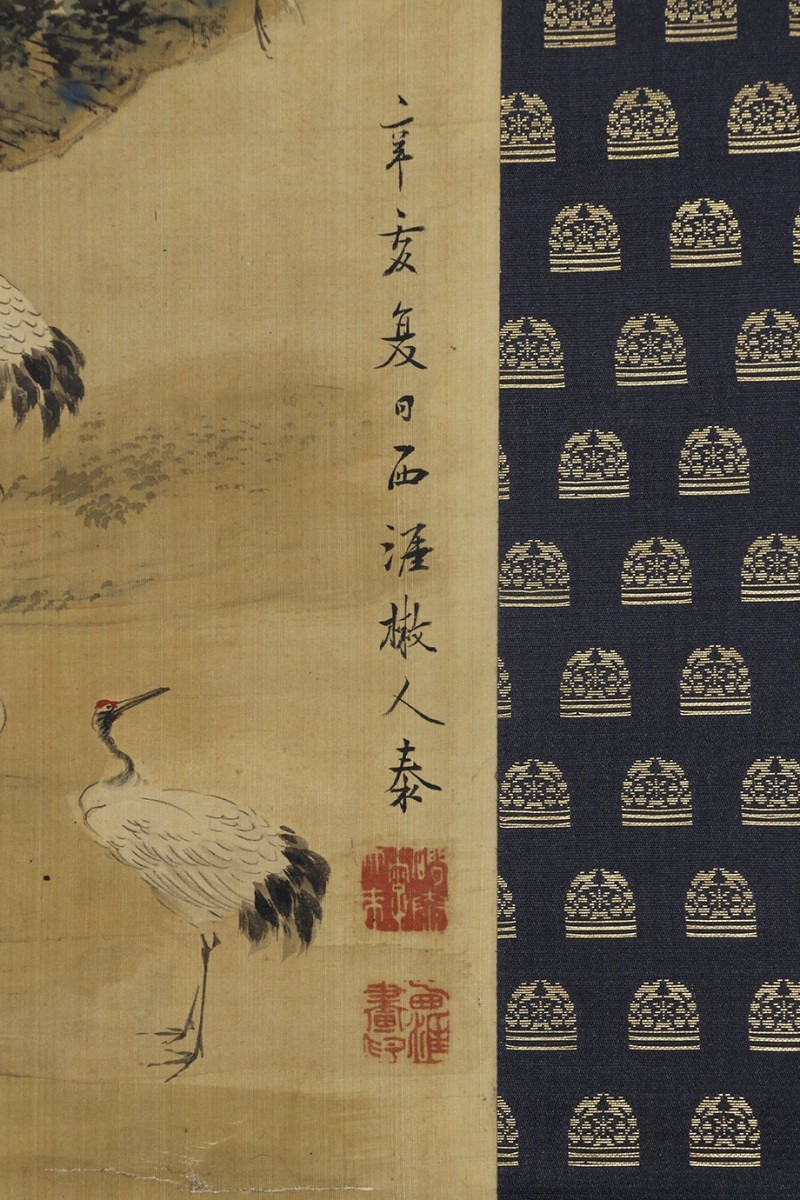 辛亥夏日西涯人泰
西涯畫印